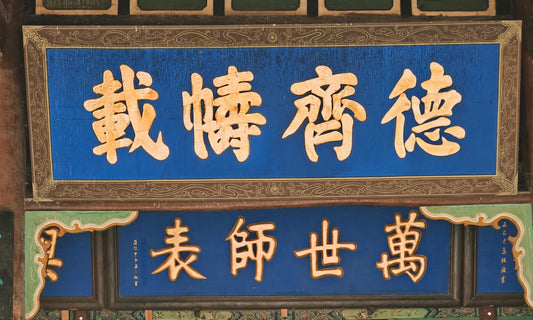 德齊幬載
萬世師表